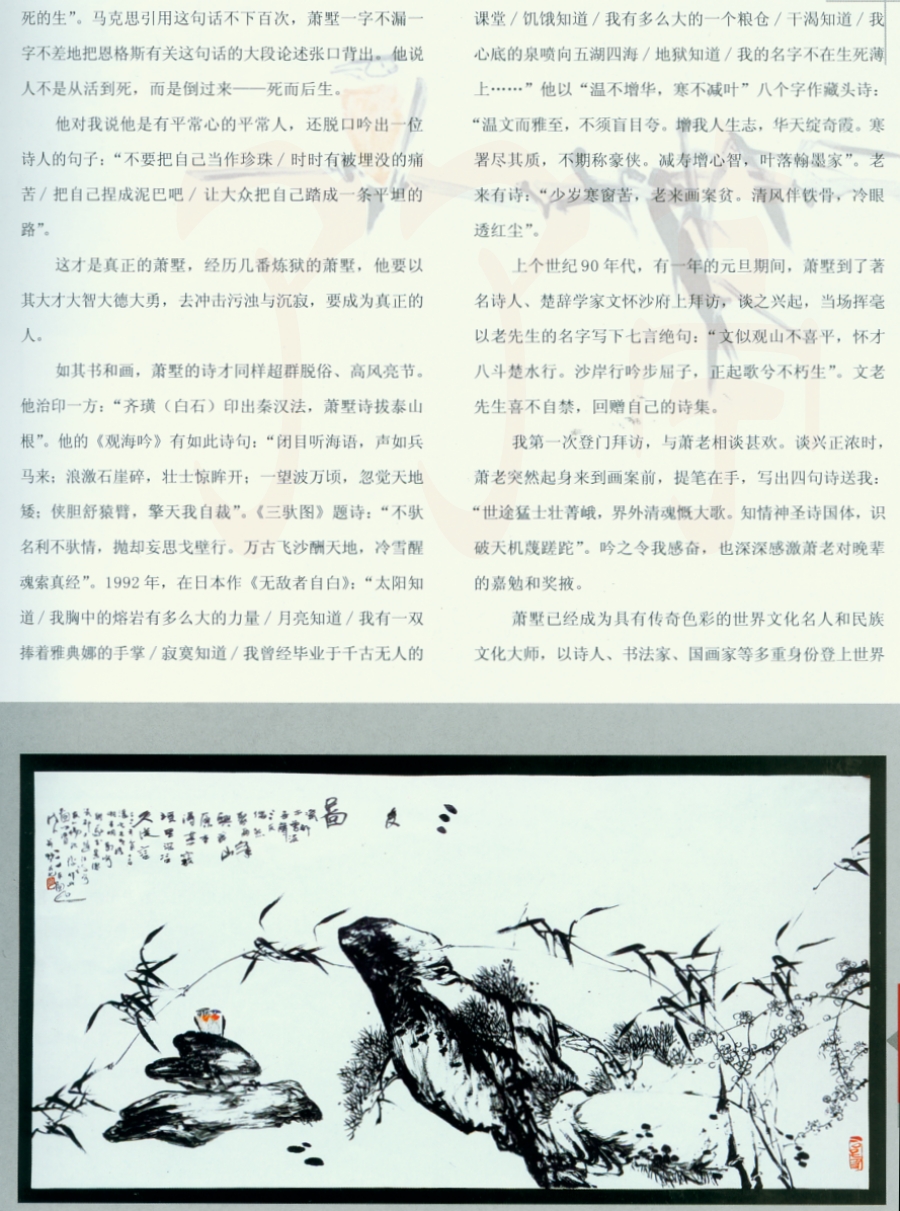 死的生”。马克思引用这句话不下百次，萧墅一字不漏一
字不差地把恩格斯有关这句话的大段论述张口背出。他说
人不是从活到死，而是倒过来——死而后生。
他对我说他是有平常心的平常人，还脱口吟出一位
诗人的句子：“不要把自己当作珍珠/时时有被埋没的痛
苦/把自己捏成泥巴吧/让大众把自己踏成一条平坦的
路”。
这才是真正的萧墅，经历几番炼狱的萧墅，他要以
其大才大智大德大勇，去冲击污浊与沉寂，要成为真正的
人。
如其书和画，萧墅的诗才同样超群脱俗、高风亮节。
他治印一方：“齐璜（白石）印出秦汉法，萧墅诗拔泰山
根”。他的《观海吟》有如此诗句：“闭目听海语，声如兵
马来；浪激石崖碎，壮士惊眸开；一望波万顷，忽觉天地
矮；侠胆舒猿臂，擎天我自裁”。《三驮图》题诗：“不驮
名利不驮情，抛却妄思戈壁行。万古飞沙酬天地，冷雪醒
魂索真经”。1992年，在日本作《无敌者自白》：“太阳知
道/我胸中的熔岩有多么大的力量/月亮知道/我有一双
捧着雅典娜的手掌/寂寞知道/我曾经毕业于千古无人的
课堂/饥饿知道/我有多么大的一个粮仓/干渴知道/我
心底的泉喷向五湖四海/地狱知道/我的名字不在生死薄
上……”他以“温不增华，寒不减叶”八个字作藏头诗：
“温文而雅至，不须盲目夸。增我人生志，华天绽奇霞。寒
署尽其质，不期称豪侠。减寿增心智，叶落翰墨家”。老
来有诗：“少岁寒窗苦，老来画案贫。清风伴铁骨，冷眼
透红尘”。
上个世纪90年代，有一年的元旦期间，萧墅到了著
名诗人、楚辞学家文怀沙府上拜访，谈之兴起，当场挥毫
以老先生的名字写下七言绝句：“文似观山不喜平，怀才
八斗楚水行。沙岸行吟步屈子，正起歌兮不朽生”。文老
先生喜不自禁，回赠自己的诗集。
我第一次登门拜访，与萧老相谈甚欢。谈兴正浓时，
萧老突然起身来到画案前，提笔在手，写出四句诗送我：
“世途猛士壮菁峨，界外清魂慨大歌。知情神圣诗国体，识
破天机蔑蹉跎”。吟之令我感奋，也深深感激萧老对晚辈
的嘉勉和奖掖。
萧墅已经成为具有传奇色彩的世界文化名人和民族
文化大师，以诗人、书法家、国画家等多重身份登上世界
三友图